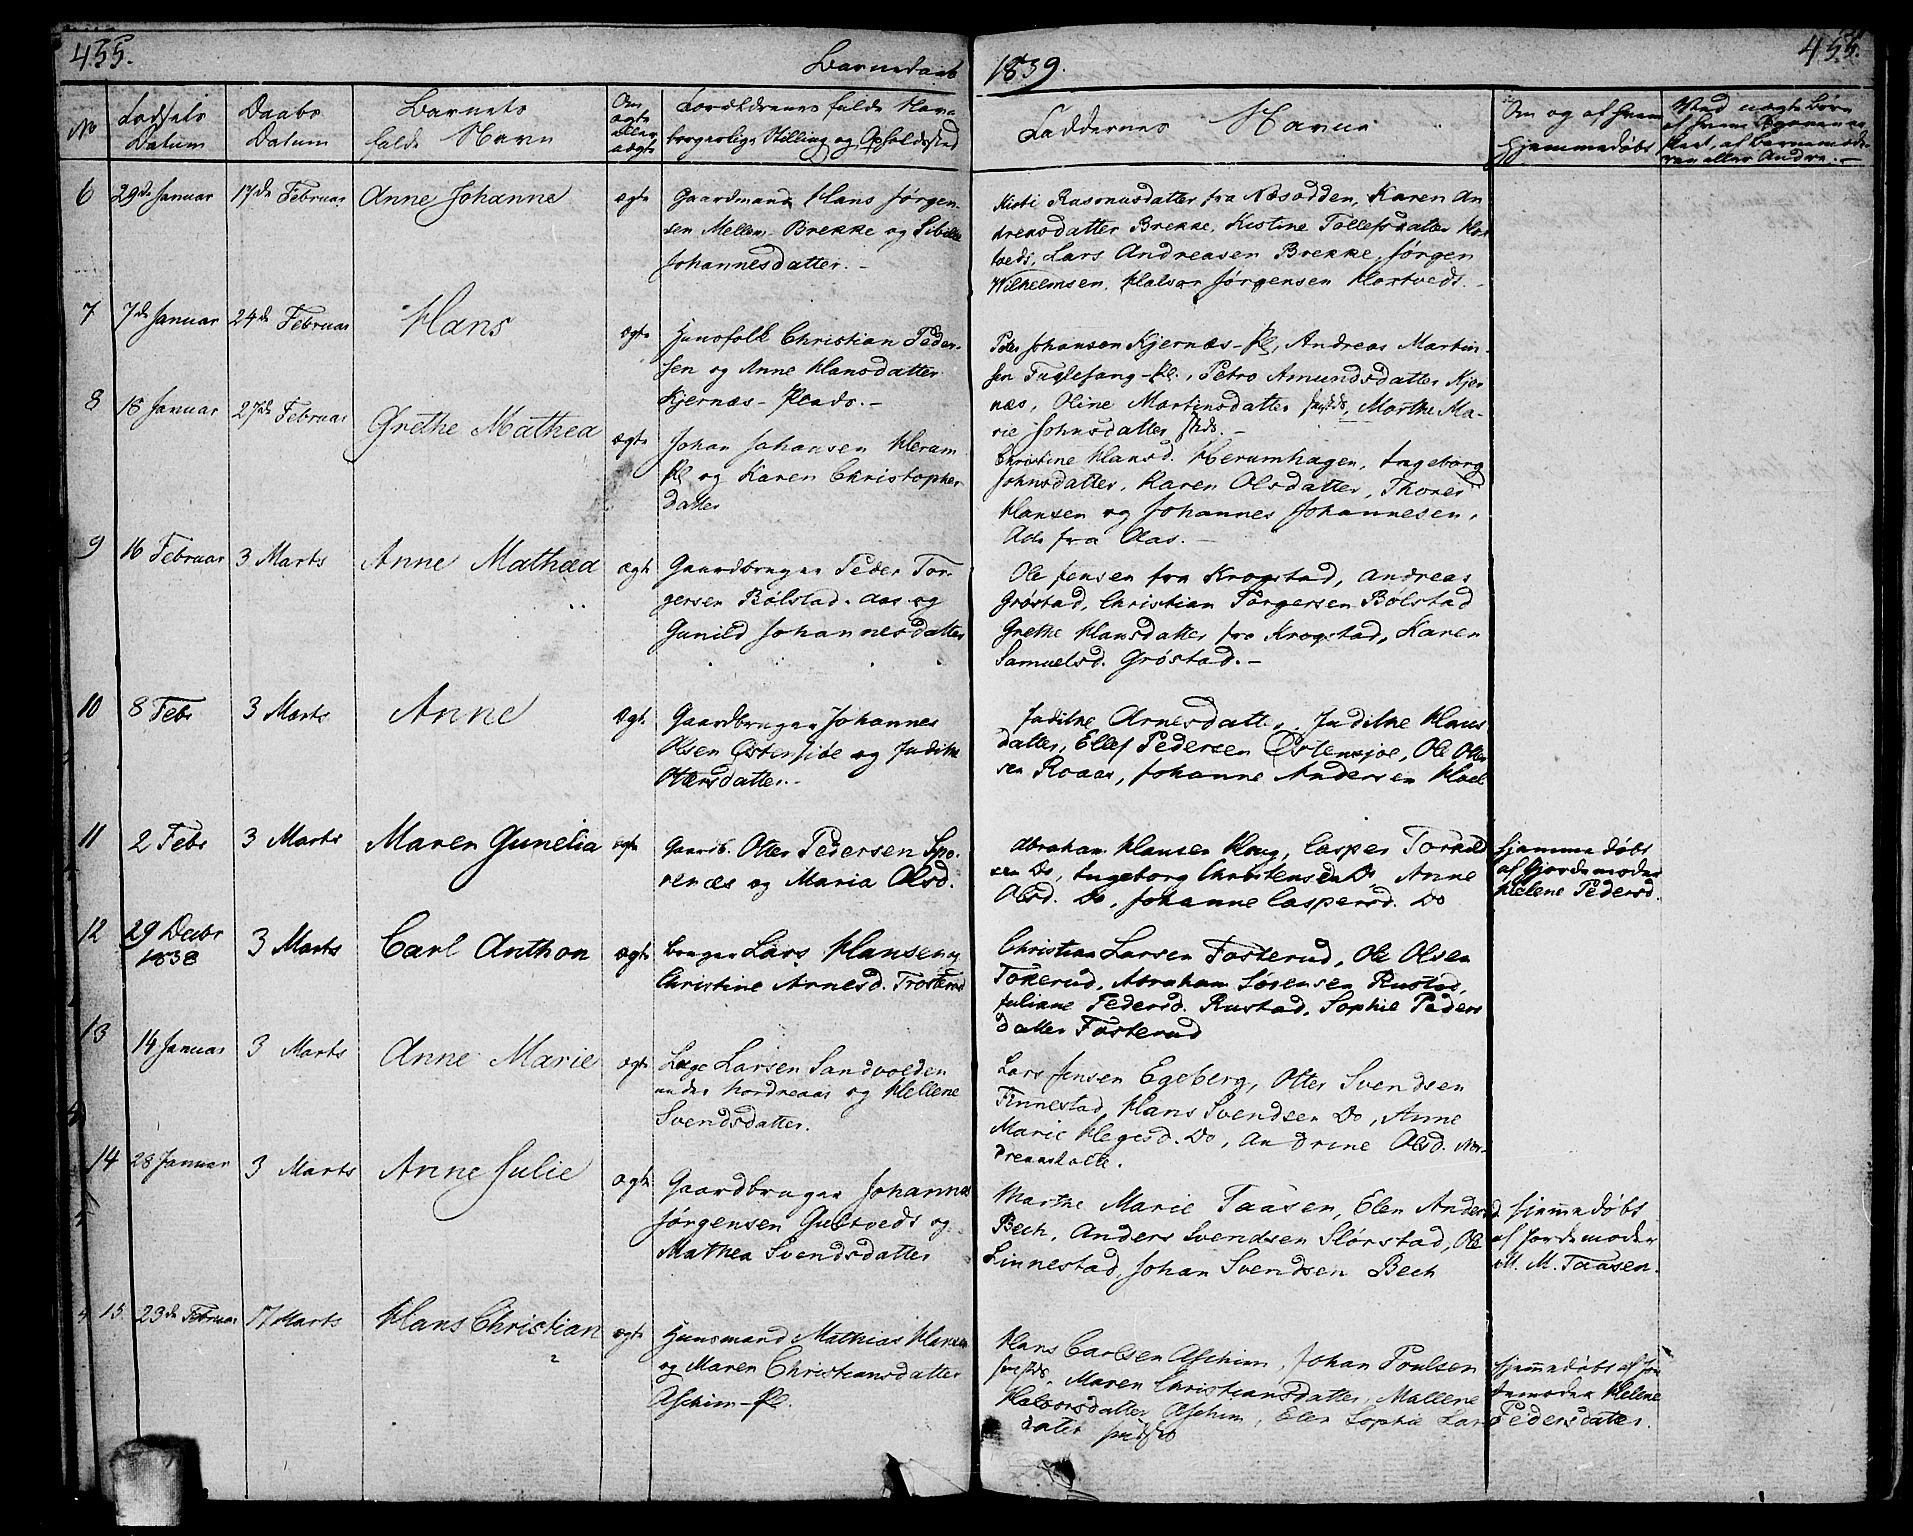 455.
Barnedaab
1839.
455.
No
Fødsels Datum
Daabs Datum
Barnets fulde Navn
Om ægte eller uægte
Forældrenes fulde Navn borgerlige Stilling og Opholdssted
Faddernes Navne
Om og af hvem hjemmedøbt
6 29de Januar 17de Februar Anne Johanne ægte
Gaardmand Hans Jørgen-
sen Mellem-Brekke og Sibille
Johannesdatter.-
Kisti Rasmusdatter fra Næsodden, Karen An
dreasdatter Brekke, Kistine Tollefsdatter Hor
tveds, Lars Andreasen Brekke, Jørgen
Wilhelmsen, Halvor Jørgensen Hortveds.-
7 7de Januar 24de Februar Hans ægte
Huusfolk Christian Peder-
sen og Anne Hansdatter
Kjernæs-Plads.-
Peder Johansen Kjernæs-Pl, Andreas Martin-
sen Fuglesang-Pl., Petro Amundsdatter Kjer
næs, Oline Martinsdatter, Marthe Ma-
rie Johnsdatter
8 18 Januar 27de Februar Grethe Mathea ægte
Johan Johansen Herum
Pl og Karen Christopher
datter
Christine Hansd. Herumhagen, Ingeborg
Johnsdatter, Karen Olsdatter, Thorer
Hansen og Johannes Johannesen,
Alle fra Aas.-
9 16 Februar 3 Marts Anne Mathea ægte
Gaardbruger Peder Tor-
gersen Bølstad-Aas og
Gunild Johannesdatter
Ole Jensen fra Krogstad, Andreas
Grøstad, Christian Torgersen Bølstad
Grethe Hansdatter fra Krogstad, Karen
Samuelsd. Grøstad.-
10 8 Febr 3 Marts Anne ægt.
Gaardbruger Johannes
Olsen Østensjøe og Judithe
Ottersdatter.-
Judithe Arnesdatter, Judithe Hans
datter, Ellef Pedersen Østensjøe, Ole Otter
sen Roaas, Johanne Andersen Hoel
11 2 Febr 3 Marts Maren Gunelia ægte
Gaardb. Otter Pedersen Spo-
renæs og Maria Olsd.
Abraham Hansen Houg, Casper Torkild
sen Do, Ingeborg Christensen Do, Anne
Olsd. Do, Johanne Caspersd. Do
Hjemmedøbt
af Gjordemoder
Helene Pedersd.
12 29 Decbr
1838 3 Marts Carl Anthon ægte
bruger Lars Hansen og
Christine Arnesd. Trosterud
Christian Larsen Fosterud, Ole Olsen
Tokerud, Abraham Sørensen Rustad,
Juliane Pedersd. Rustad, Sophie Peders
datter Fosterud
13 14 Januar 3 Marts Anne Marie ægte
Lage Larsen Sandvolden
under Nordreaas og Hellene
Svendsdatter.
Lars Jensen Egeberg, Otter Svendsen
Finnestad, Hans Svendsen Do, Anne
Marie Hegesd. Do, Andrine Olsd. Nor-
14 28 Januar 3 Marts Anne Julie ægte
Gaardbruger Johannes
Jørgensen Gultveds og
Mathea Svendsdatter
Marthe Marie Taasen, Elen Andersd.
Bech, Anders Svendsen Slørstad, Ole
Linnestad, Johan Svendsen Bech
Hjemmedøbt
af Jordemoder
M. M. Taasen.
15 23de Februar 17 Marts Hans Christian ægte
Huusmand Mathias Hansen
og Maren Christiansdatter
Aschim-Pl.
Hans Carlsen Aschim, Johan Poulsen
Maren Christiansdatter, Mallene
Halvorsdatter Aschim, Elen Sophie Lars
datter
Hjemmedøbt af Jor
demoder Helene
Pedersdatter.